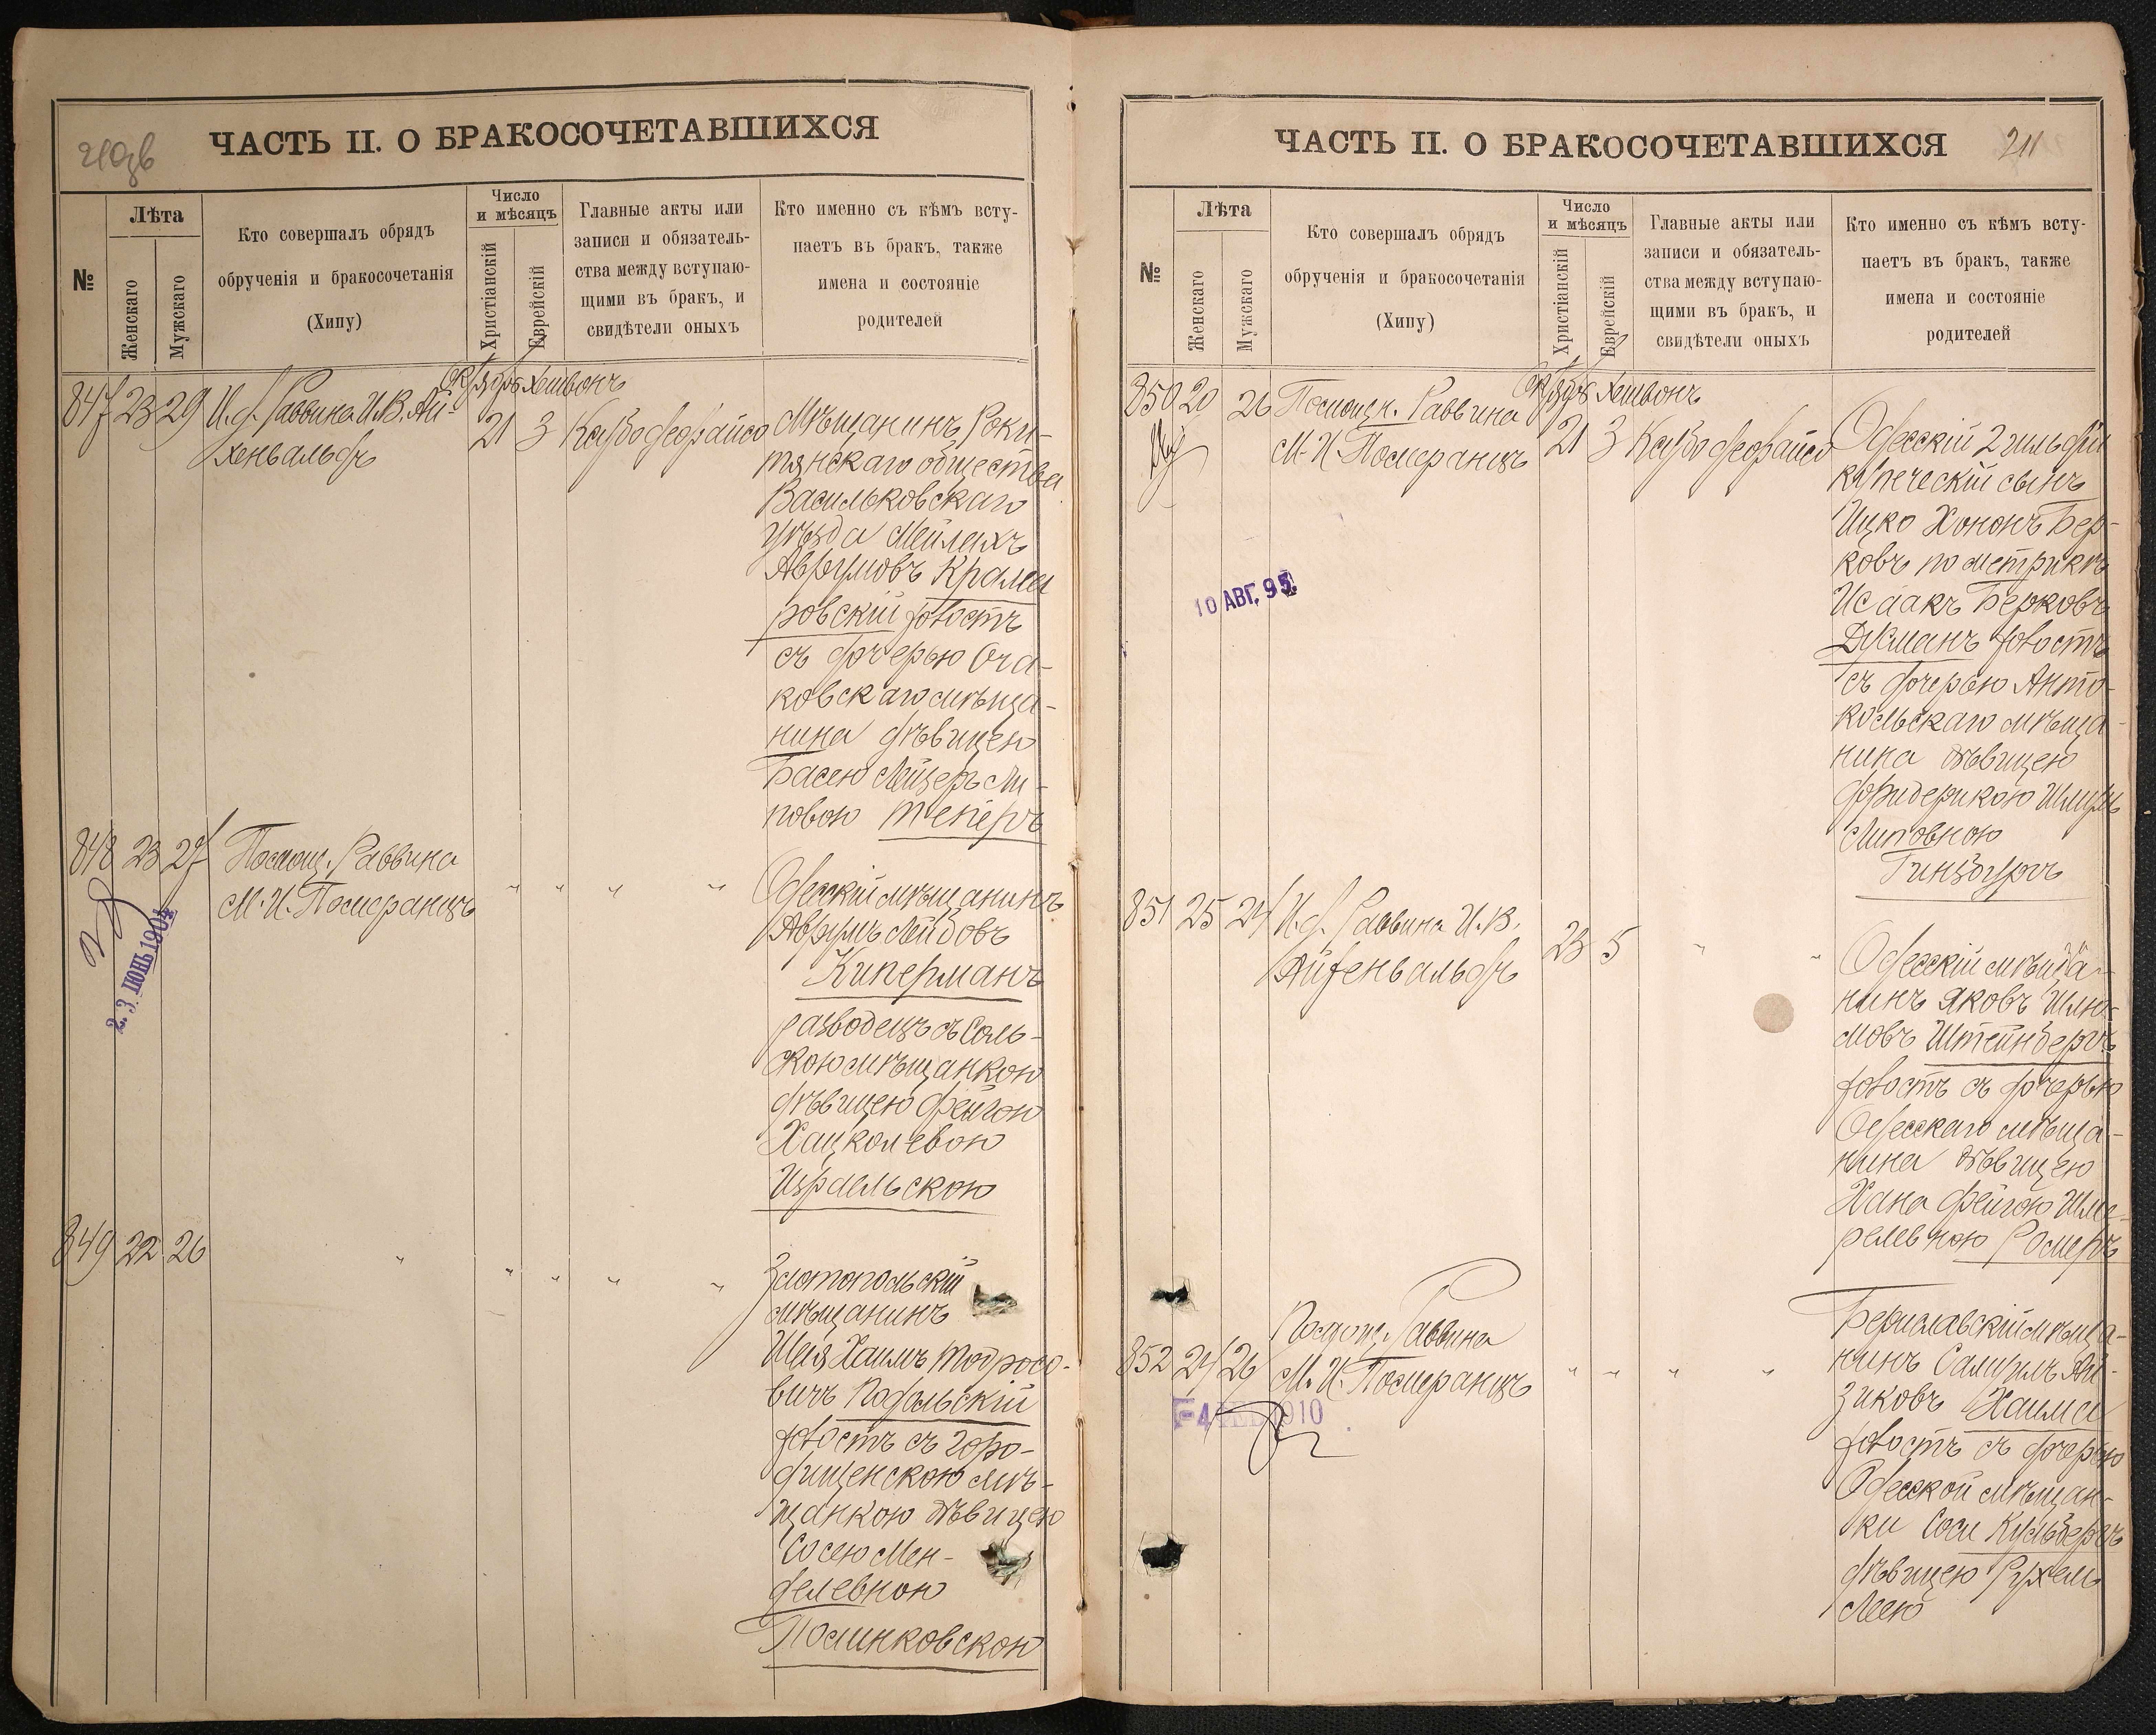 210 об
ЧАСТЬ II. О БРАКОСОЧЕТАВШИХСЯ
№
Лѣта
Женскаго
Мужскаго
Кто совершалъ обрядъ
обрученія и бракосочетанія
(Хипу)
Число
и мѣсяцъ
Христіанскій
Еврейскій
Главные акты или
записи и обязатель-
ства между вступаю-
щими въ бракъ, и
свидѣтели оныхъ
Кто именно съ кѣмъ всту-
паетъ въ бракъ, также
имена и состояніе
родителей
Октябрь Хешвонъ
847 23 29 И.д. Раввина И.В. Ай-
хенвальдъ
21 3
Мѣщанинъ Роки-
тянскаго общества
Васильковскаго
уѣзда Мейлехъ
Аврумовъ Крами
ровскій холостъ
съ дочерью Оча-
ковскаго мѣща-
нина дѣвицею
Басею Лейзеръ Ли-
повою Теперъ
848 23 27 Помощ. Раввина
М. И. Померанцъ
" " " "
23 ІЮНЬ 1904
Одесскій мѣщанинъ
Аврумъ Лейбовъ
Киперманъ
разводецъ съ Соль-
скою мѣщанкою
дѣвицею Фейгою
Хацкелевою
Израельскою
849 22 26 " " " " "
Златопольскій
мѣщанинъ
Шая Хаимъ Тодросо-
вичъ Подольскій
холостъ съ Горо-
дищенскою мѣ-
щанкою дѣвицею
Сосею Мен-
делевною
Полинковской
ЧАСТЬ II. О БРАКОСОЧЕТАВШИХСЯ
211
№
Лѣта
Женскаго
Мужскаго
Кто совершалъ обрядъ
обрученія и бракосочетанія
(Хипу)
Число
и мѣсяцъ
Христіанскій
Еврейскій
Главные акты или
записи и обязатель-
ства между вступаю-
щими въ бракъ, и
свидѣтели оныхъ
Кто именно съ кѣмъ всту-
паетъ въ бракъ, также
имена и состояніе
родителей
Октябрь Хешвонъ
850 20 26 Помощн. Раввина
М. И. Померанцъ
21 3
10 АВГ. 95
Одесскій 2 гильдіи
купеческій сынъ
Ицко Хононъ Бер-
ковъ по метрикѣ
Исаакъ Берковъ
Дукманъ холостъ
съ дочерью Анто-
кольскаго мѣща-
нина дѣвицею
Фридерикою Шлумъ
Липовною
Гинзбургъ
851 25 24 И.д. Раввина И.В.
Айхенвальдъ
23 5 " "
Одесскій мѣща-
нинъ Яковъ Шлио-
мовъ Штейнбергъ
холостъ съ дочерью
Одесскаго мѣща-
нина дѣвицею
Хана Фейгою Шме-
релевною Ромеръ
852 24 26 Помощ. Раввина
М. И. Померанцъ
" " " "
-4 ФЕВ 1910
Бериславскій мѣща-
нинъ Самуилъ Ай-
зиковъ Хаимъ
холостъ съ дочерью
Одесской мѣщан-
ки Соси Кульбергъ
дѣвицею Рухель
Леею